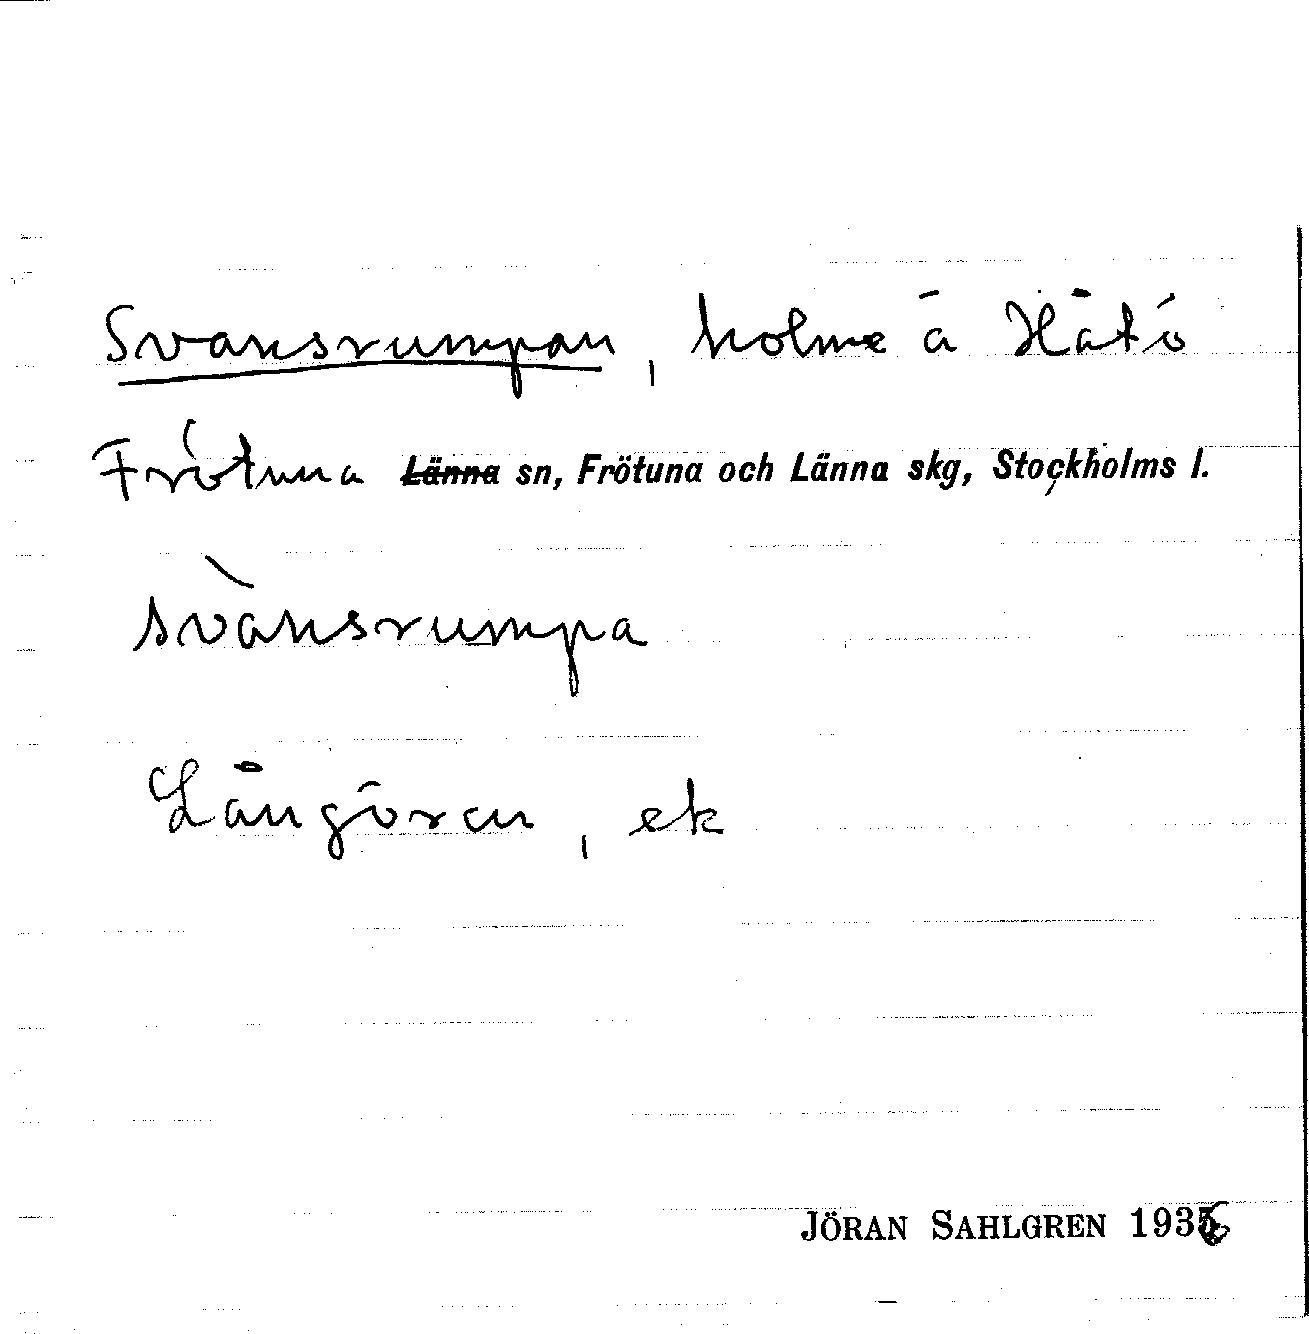 Svansrumpan, holme å Håtö
Frötuna Länna sn, Frötuna och Länna skg, Stockholms l.
svànsrumpa
Långören, ek
JÖRAN SAHLGREN 1936